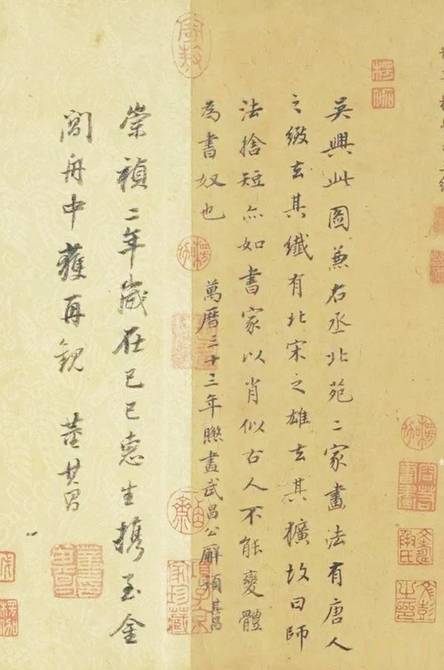 吳興此圖兼右丞北苑二家畫法有唐人
之緻去其纖有北宋之雄去其獷故曰師
法捨短亦如書家以肖似古人不能變體
為書奴也 萬曆三十三年畫武昌公廨題其昌
崇禎二年歲在己巳惠生攜至金
閶舟中獲再觀 董其昌